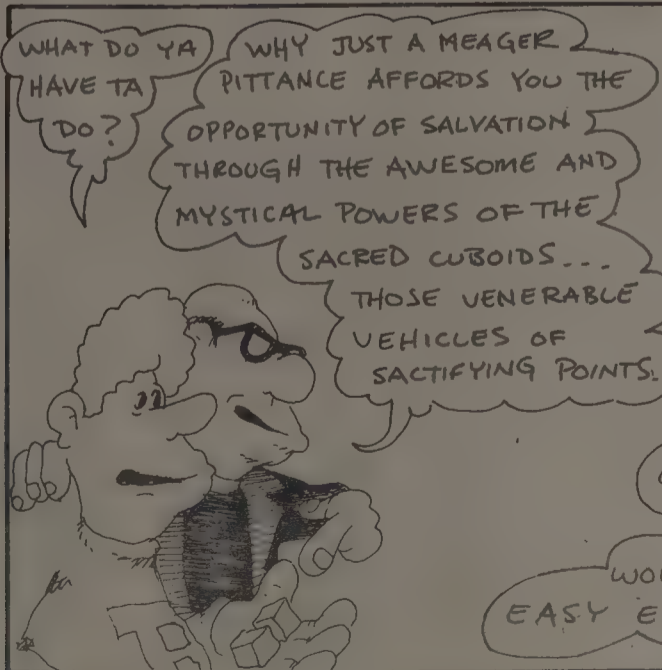 WHAT DO YA
HAVE TA
DO?
WHY JUST A MEAGER
PITTANCE AFFORDS YOU THE
OPPORTUNITY OF SALVATION
THROUGH THE AWESOME AND
MYSTICAL POWERS OF THE
SACRED CUBOIDS...
THOSE VENERABLE
VEHICLES OF
SACTIFYING POINTS.
EASY